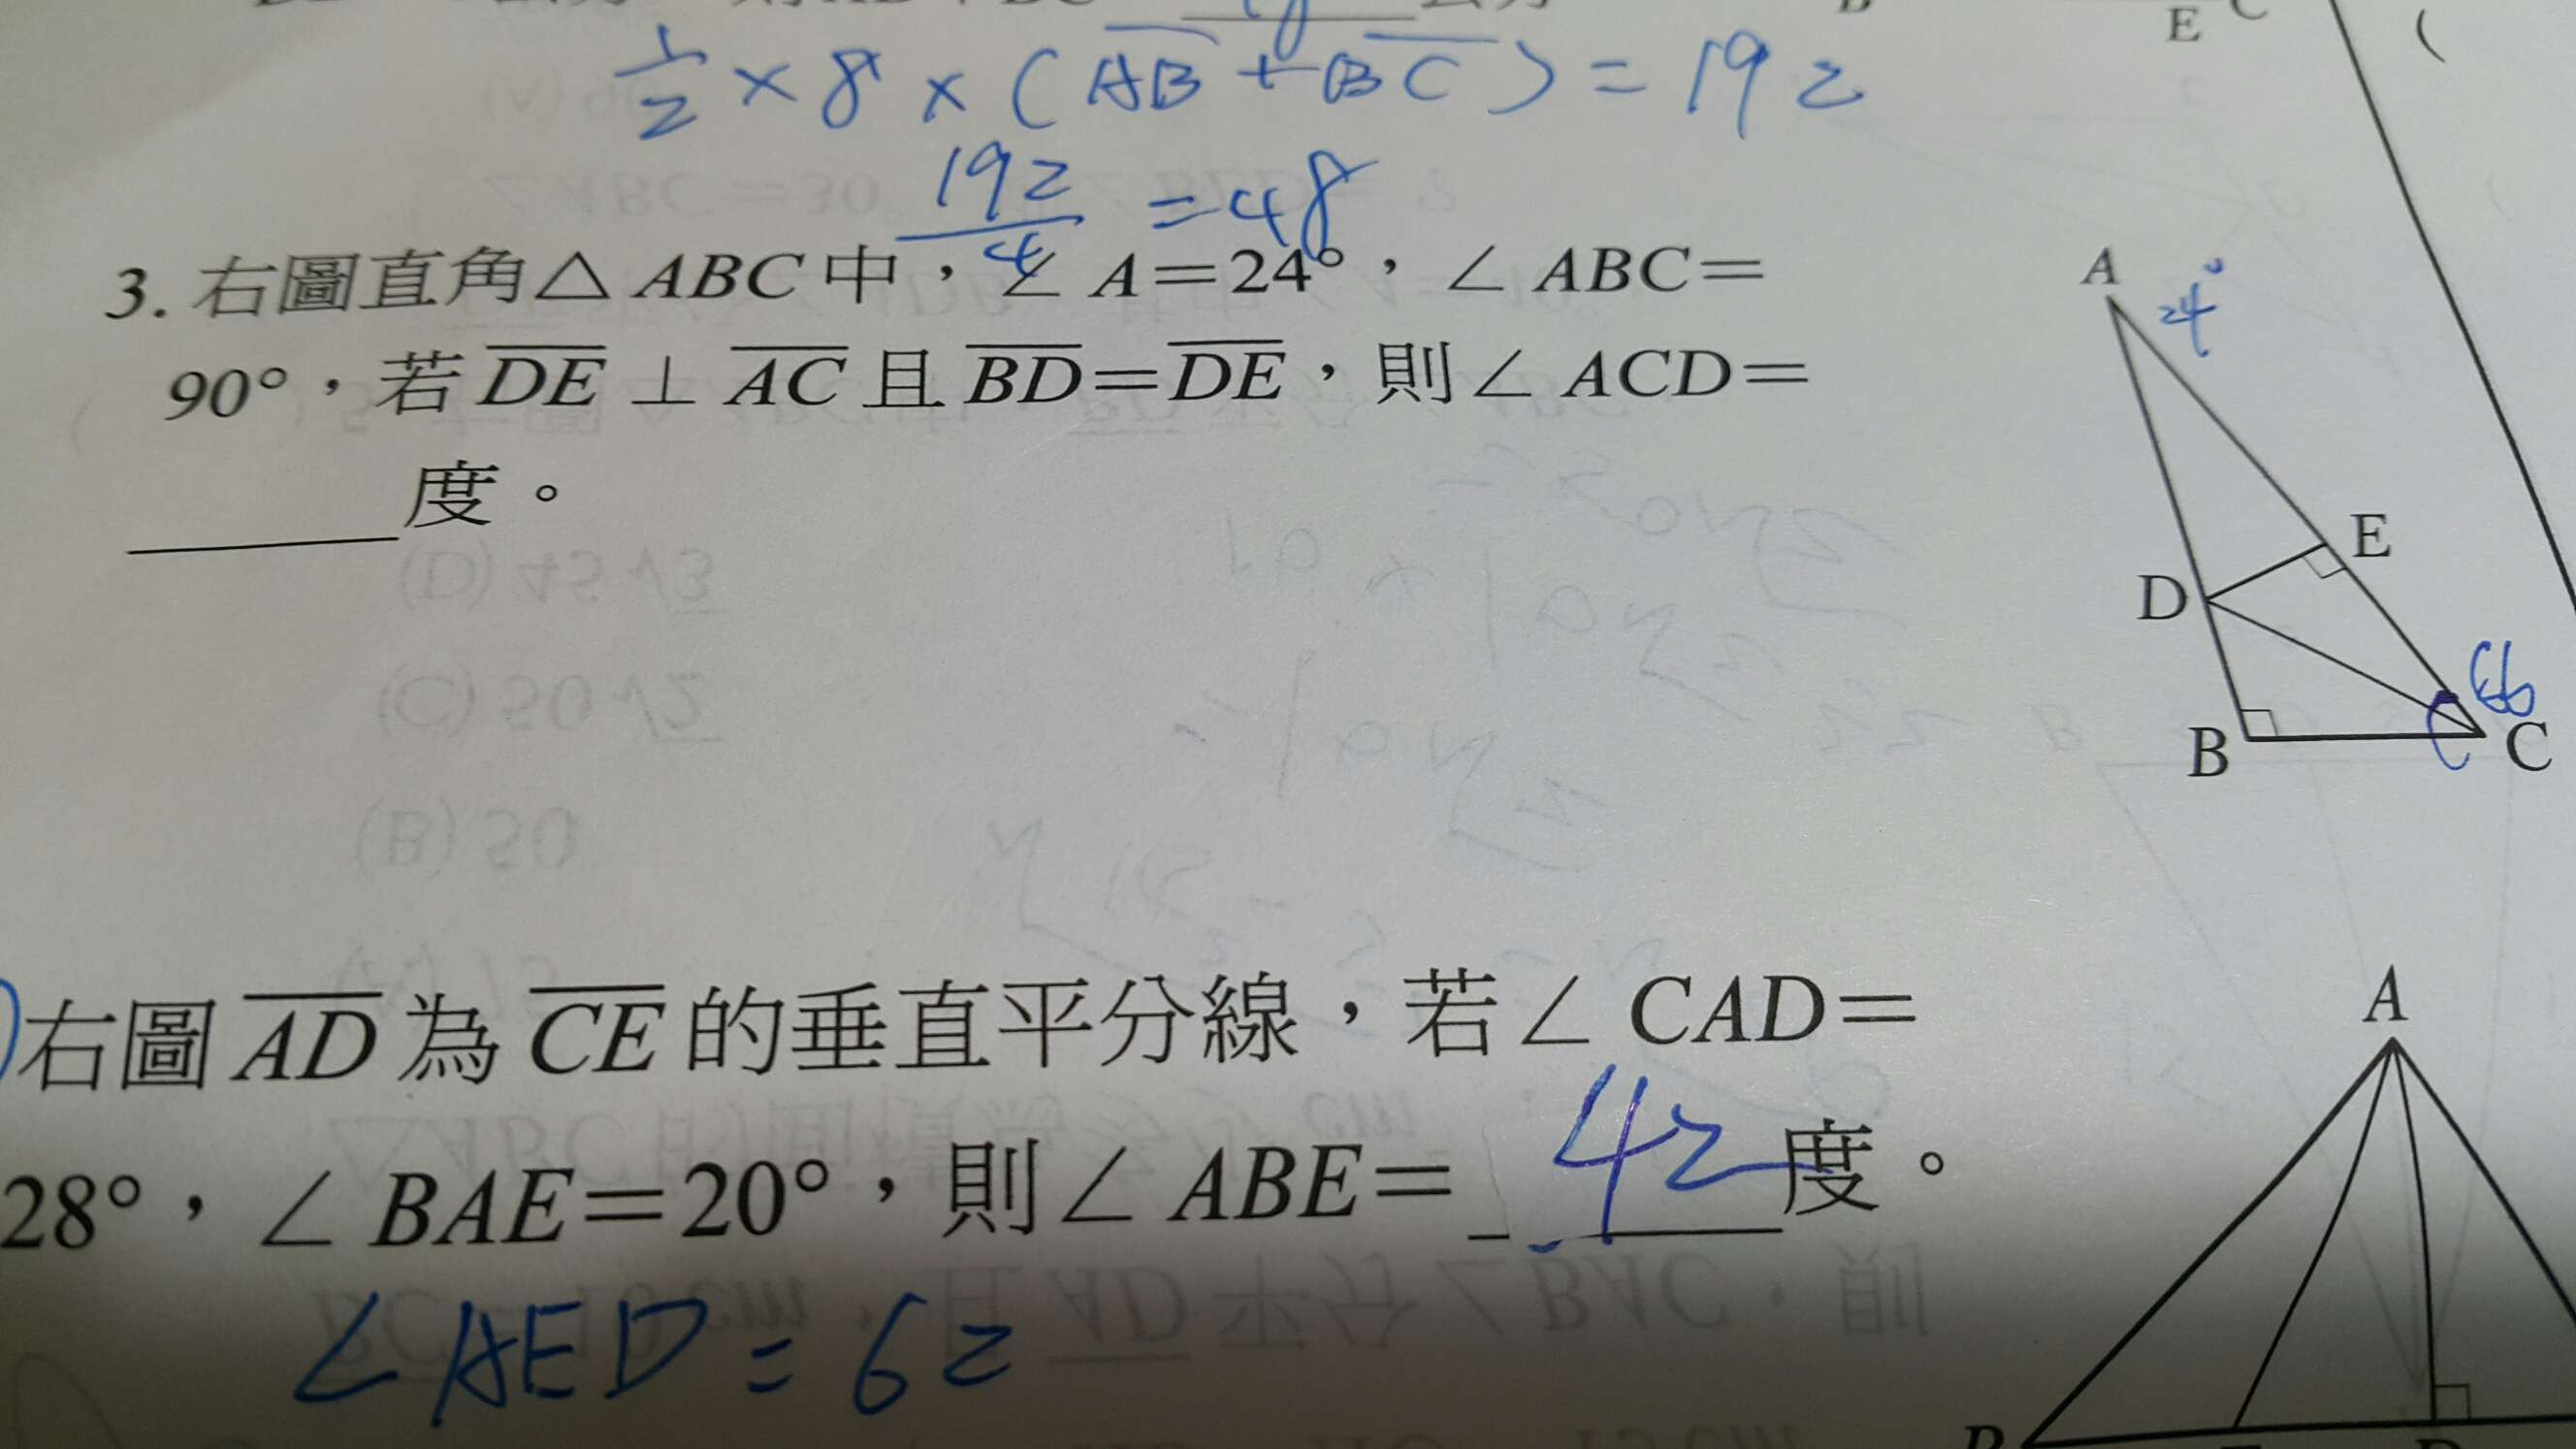 ½×8×(AB+BC)=192
192/4=48
3. 右圖直角△ABC中，∠A=24°，∠ABC=
90°，若DE⊥AC且BD=DE，則∠ACD=
______度。
E C
A 24°
E
D
66
B C
右圖AD為CE的垂直平分線，若∠CAD=
28°，∠BAE=20°，則∠ABE=42度。
∠AED=62
A